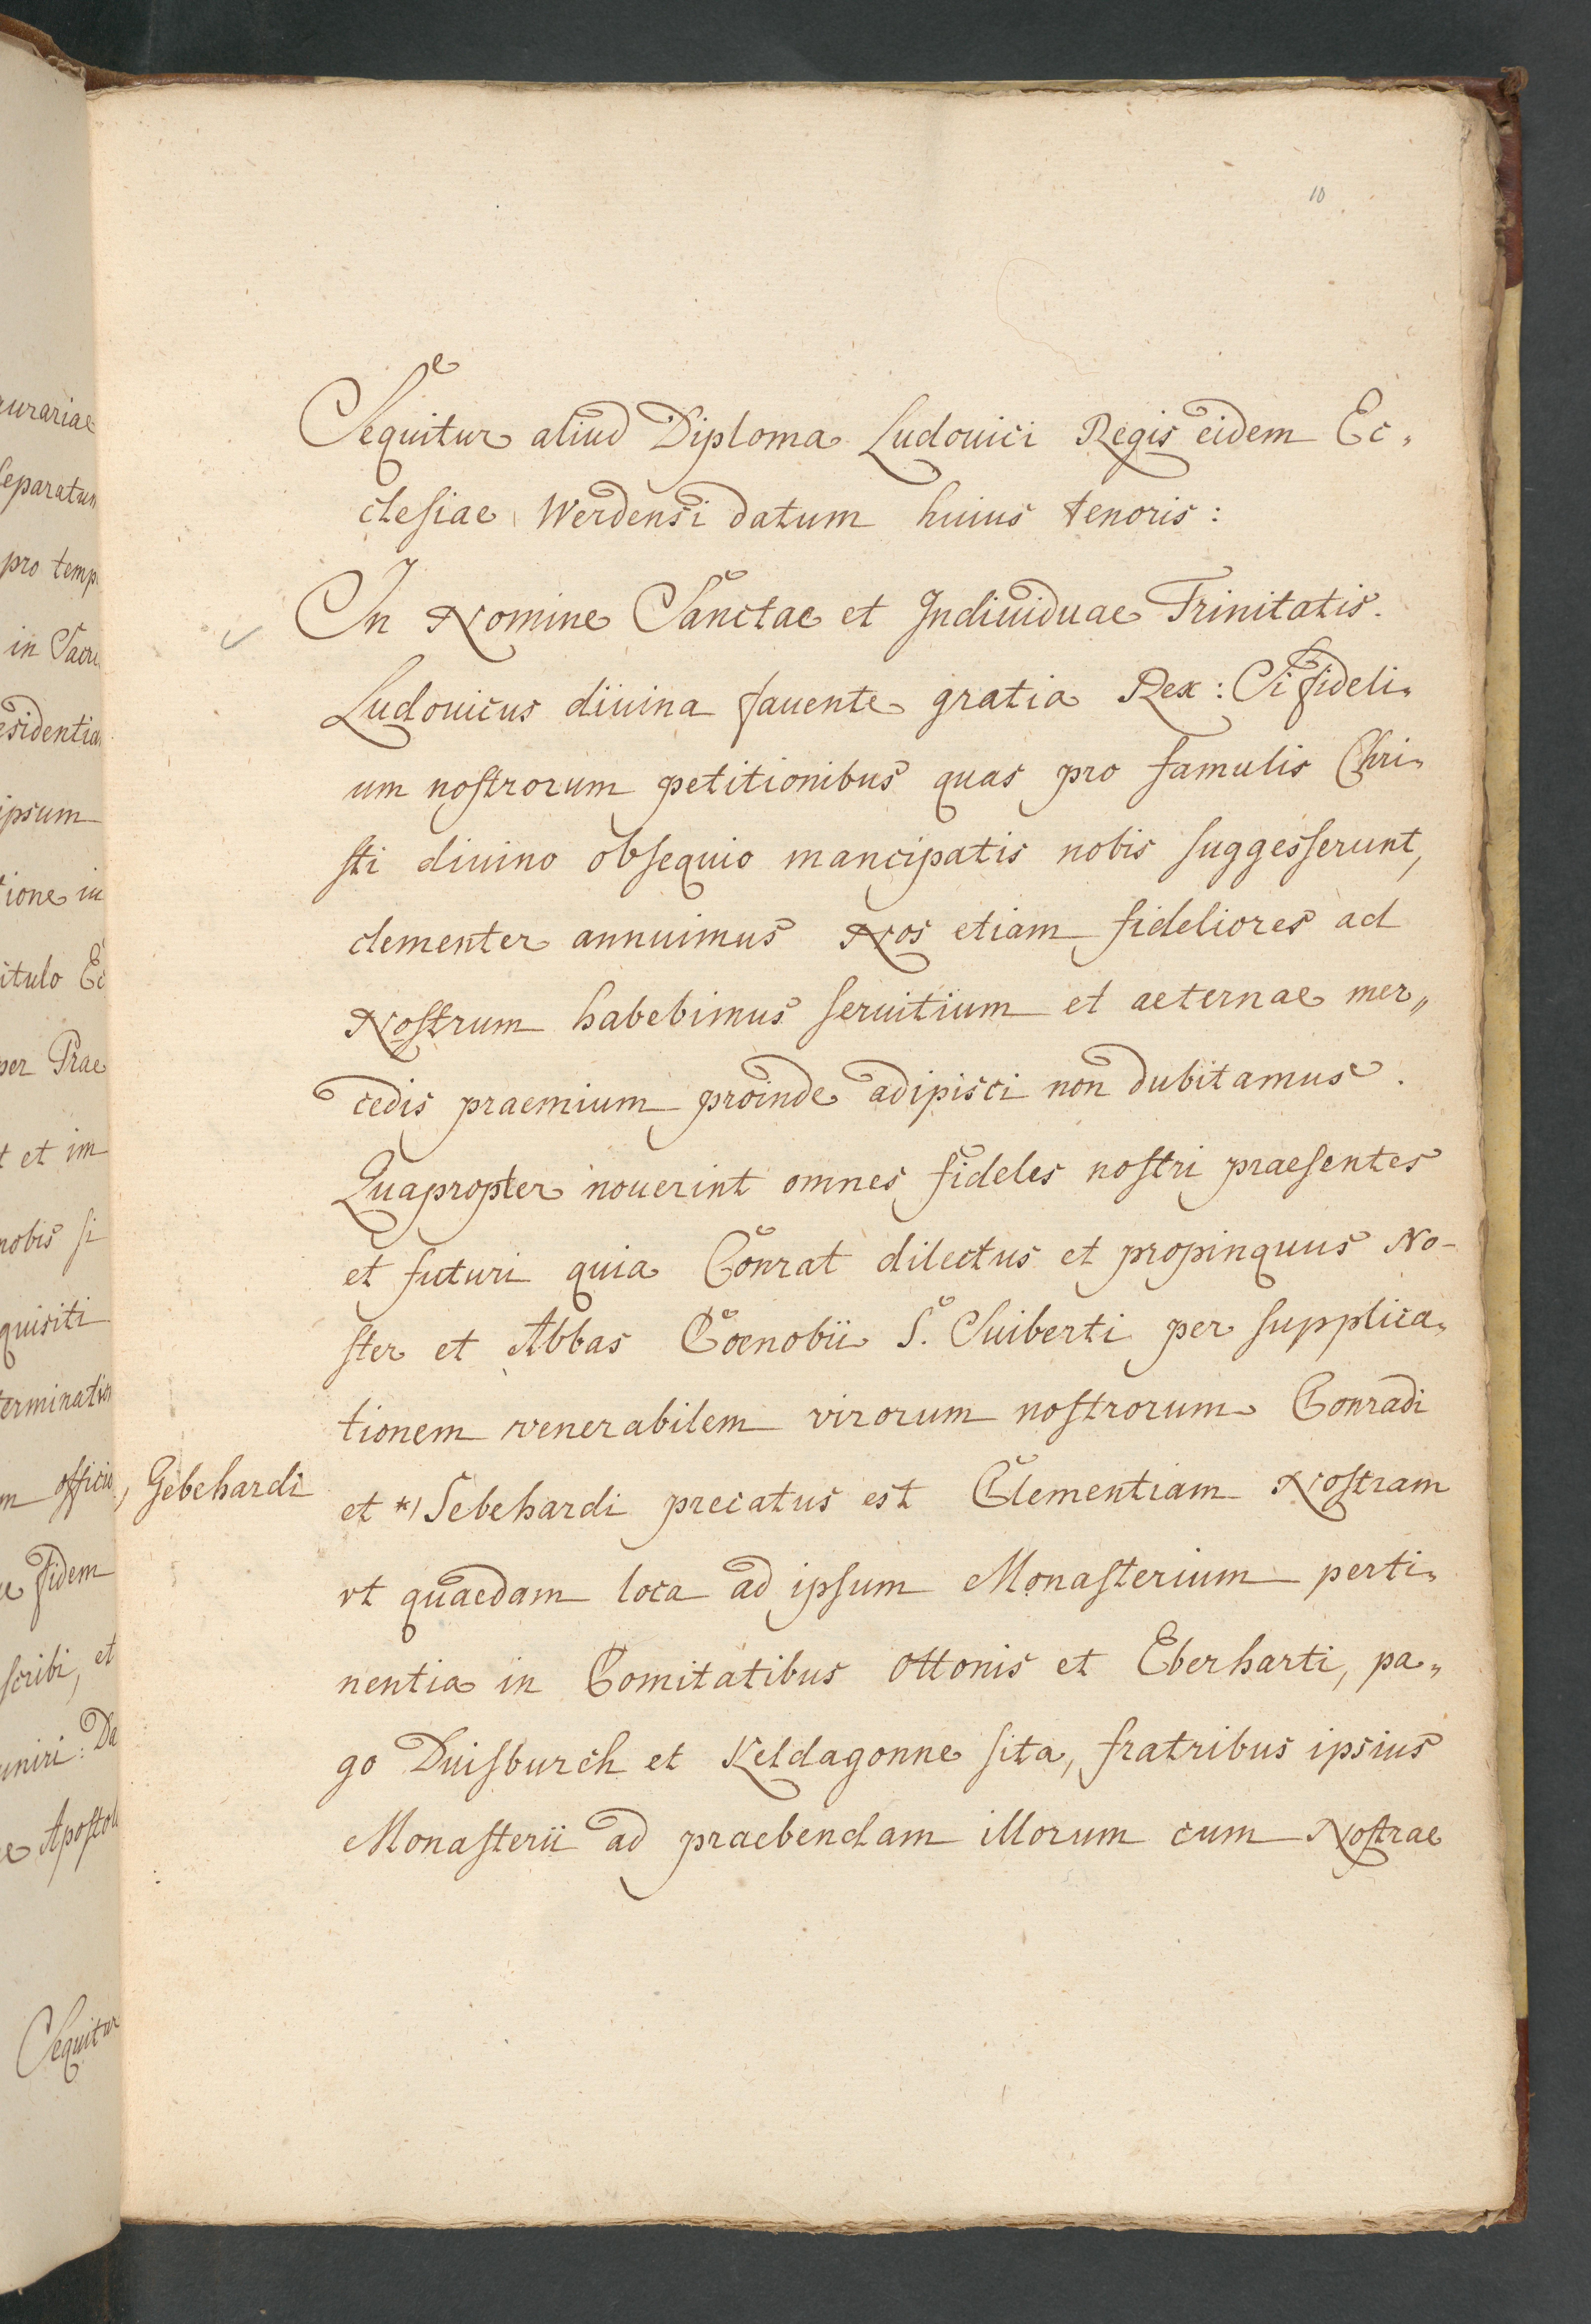 10
Sequitur aliud Diploma Ludouici Regis eidem Ec„
clesiae Werdensi datum huius tenoris:
In Nomine Sanctae et Indiuiduae Trinitatis.
Ludouicus diuina fauente gratia Rex: Si fideli„
um nostrorum petitionibus quas pro famulis Chri„
sti diuino obsequio mancipatis nobis suggesserunt,
clementer annuimus Nos etiam fideliores ad
Nostrum habebimus seruitium et aeternae mer„
cedis praemium proinde adipisci non dubitamus.
Quapropter nouerint omnes fideles nostri praesentes
et futuri quia Conrat dilectus et propinquus No-
ster et Abbas Coenobii S. Suiberti per supplica„
tionem venerabilem virorum nostrorum Conradi
Gebehardi
et *) Sebehardi precatus est Clementiam Nostram
vt quaedam loca ad ipsum Monasterium perti„
nentia in Comitatibus Ottonis et Eberharti, pa„
go Duisburch et Keldagonne sita, fratribus ipsius
Monasterii ad praebendam illorum cum Nostrae
urariae
separatum
pro temp
in Sacr
esidentia
ipsum
tione in
itulo Ec
per Prae
t et im
nobis si
quisiti
terminatio
m officio
e fidem
scribi, et
uniri: Da
e Apostol
Sequitur